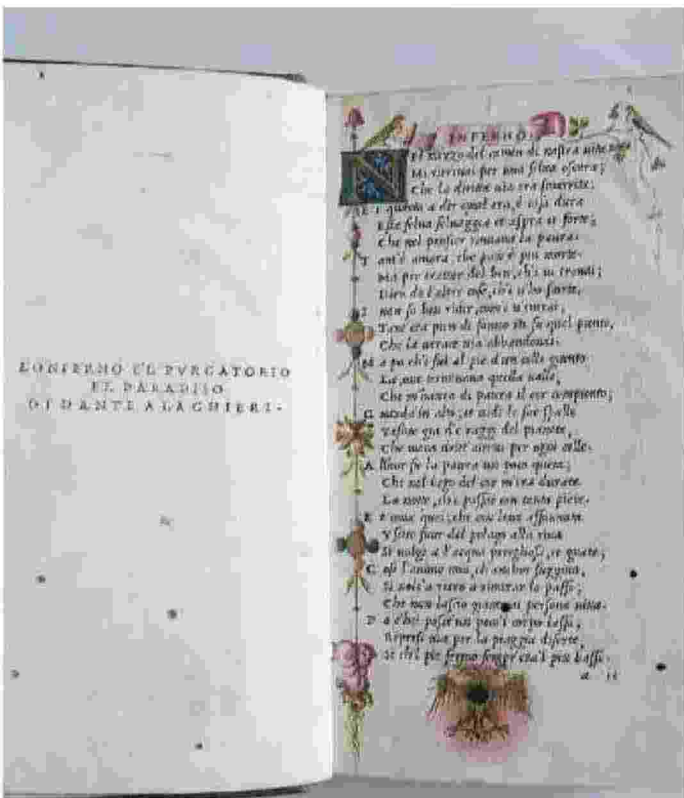 LO'NFERNO E'L PVRGATORIO
E'L PARADISO
DI DANTE ALAGHIERI.
INFERNO.
NEl mezzo del camin di nostra vita
Mi ritrovai per una selva oscura;
Che la diritta via era smarrita:
E t quanto a dir qual era, è cosa dura
Esta selva selvaggia et aspra et forte;
Che nel pensier rinova la paura.
T ant'è amara, che poco è piu morte.
Ma per trattar del ben, ch'i vi trovai;
Diro de l'altre cose, ch'i v'ho scorte.
I non so ben ridir, com'i v'entrai;
Tant'era pien di sonno in su quel punto,
Che la verace via abbandonai.
M a po ch'i fui al pie d'un colle giunto
La ove terminava quella valle,
Che m'havea di paura il cor compunto;
G uardai in alto; et vidi le sue spalle
Vestite gia de raggi del pianeta,
Che mena dritt'altrui per ogni calle.
A llhor fu la paura un poco queta;
Che nel lago del cor m'era durata
La notte, ch'i passai con tanta pieta.
E t come quei; che con lena affannata
Vscito fuor del pelago alla riva
Si volge a l'acqua perigliosa, et guata;
C osi l'animo mio, ch'anchor fuggiva,
Si vols'a retro a rimirar lo passo;
Che non lascio giamai persona viva.
P o posat un poco'l corpo lasso;
Ripresi via per la piaggia diserta,
Si che'l pie fermo sempr'era'l piu basso.
a ii